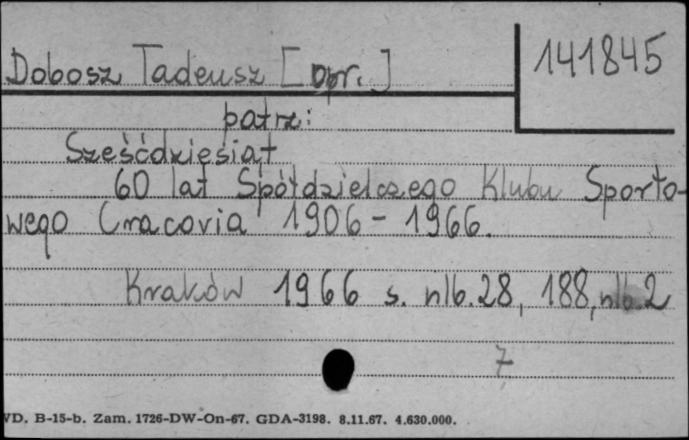 141845
Dobosz Tadeusz [opr.]
patrz:
Sześćdziesiąt
60 lat Spółdzielczego Klubu Sporto-
wego Cracovia 1906 - 1966.
Kraków 1966 s. nlb. 28, 188, nlb. 2
7
VD. B-15-b. Zam. 1726-DW-On-67. GDA-3198. 8.11.67. 4.630.000.